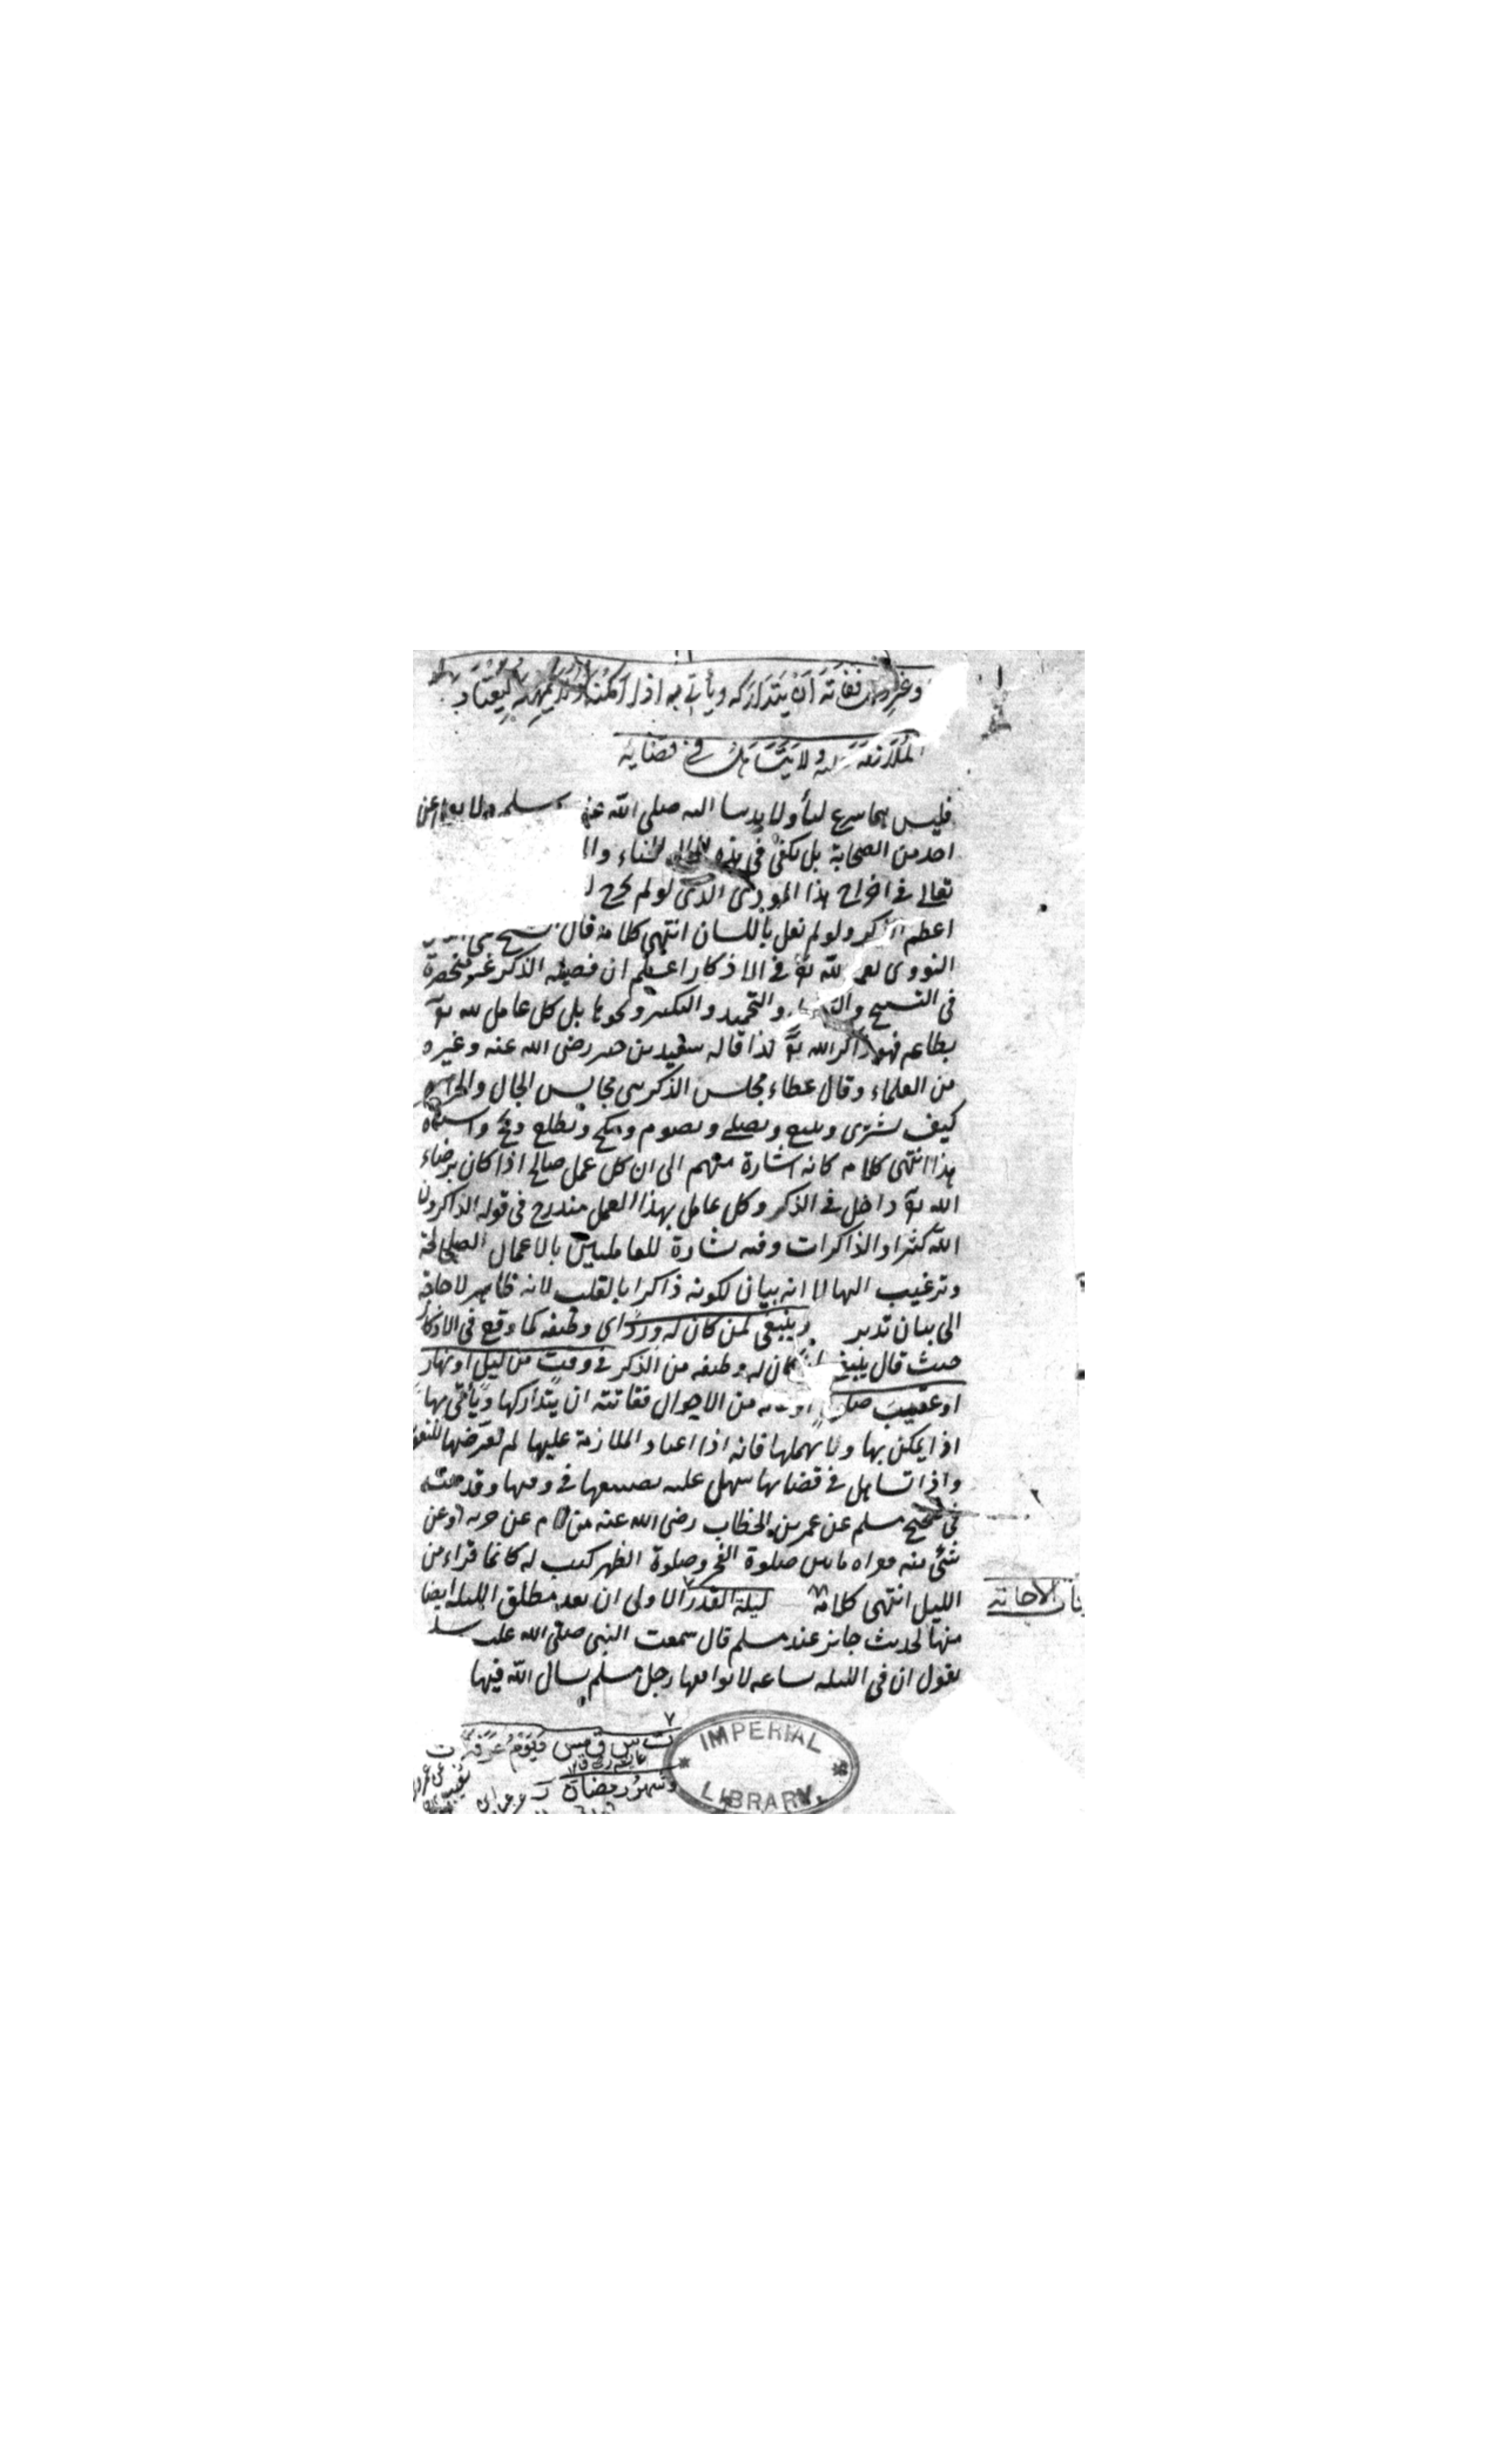 وغيره ففاته أن يتداركه ويأتي به اذا امكنه ولا يهمله ليعتاد
الملازمة عليه ولا يتساهل في قضايه
فليس بها سرع لنا ولا يدنا اليه صلى الله عليه وسلم ولا
احد من الصحابة بل يكفى في هذه
تعالى في اخراج هذا الموذى الذى لولم يخرج
اعظم الذكر ولولم نقل باللسان انتهى كلامه قال الشيخ
النووى رحمه الله تع في الاذكار اعلم ان فضيلة الذكر غير منحصرة
في التسبيح والتهليل والتحميد والتكبير ونحوها بل كل عامل لله تع
بطاعه فهو ذاكر الله تع كذا قاله سعيد بن جبير رضى الله عنه وغيره
من العلماء وقال عطاء مجلس الذكر هي مجالس الحلال والحرام
كيف تشترى وتبيع وتصلى وتصوم وتنكح وتطلق وتحج واشباه
هذا انتهى كلامه كانه اشارة منهم الى ان كل عمل صالح اذا كان برضاء
الله تع داخل في الذكر وكل عامل بهذا العمل مندرج في قوله الذاكرون
الله كثيرا والذاكرات وفيه بشارة للعاملين بالاعمال الصالحة
وترغيب اليها لا انه بيان لكونه ذاكرا بالقلب لانه ظاهر لا حاجة
الى بيان تدبر وينبغى لمن كان له ورد اى وظيفه كما وقع في الاذكار
حيث قال ينبغى لمن كان له وظيفه من الذكر في وقت من ليل او نهار
او عقيب صلوة او حالة من الاحوال ففاتته ان يتداركها ويأتى بها
اذا يمكن بها ولا يهملها فانه اذا اعتاد الملازمة عليها لم يعرضها للتفويت
واذا تساهل في قضائها سهل عليه تضييعها في وقتها وقد ثبت
في صحيح مسلم عن عمر بن الخطاب رضى الله عنه من نام عن حزبه او عن
شئ منه فقراه ما بين صلوة الفجر وصلوة الظهر كتب له كانما قراءه من
الليل انتهى كلامه ليلة القدر الاولى ان يعد مطلق الليله ايضا
منها لحديث جابر عند مسلم قال سمعت النبى صلى الله عليه وسلم
يقول ان في الليله ساعه لا يوافقها رجل مسلم يسال الله فيها
ت س ق مس ويوم عرفة ت
وشهر رمضان
IMPERIAL
LIBRARY.